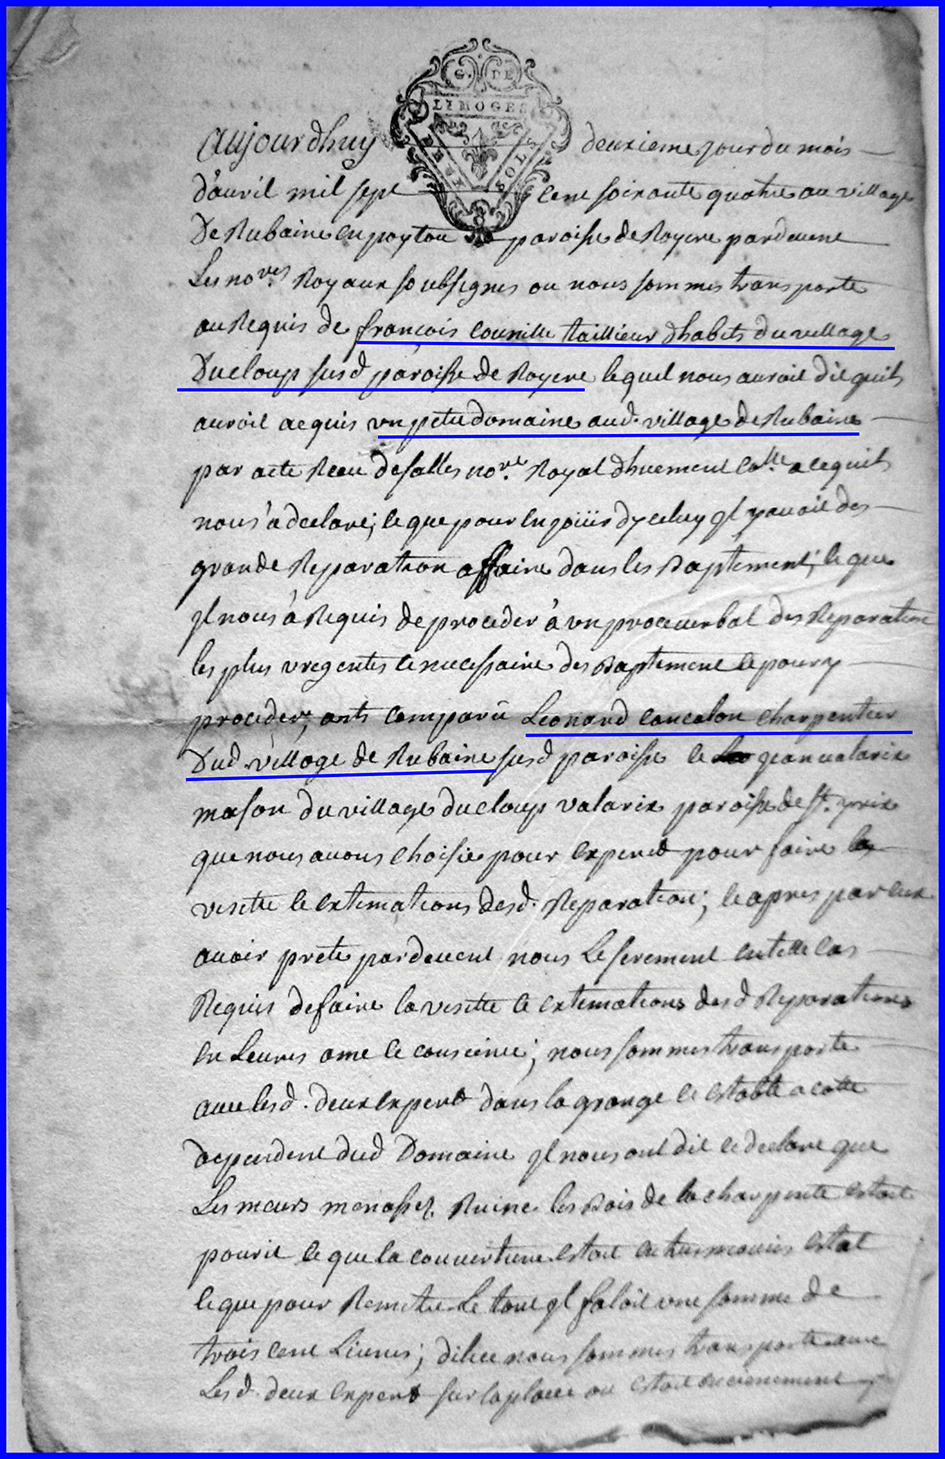 G. DE
LIMOGES
SOLS
aujourdhuy deuxieme jour du mois
d'avril mil sept cent soixante quatre au village
De Rubaine en poytou paroisse de Royere pardevent
Les no.res Royaux soubsignes ou nous sommes transporte
au Requis de françois tallieur dhabits du village
Ducloup susd paroisse de Royere lequel nous auroit dit quil
auroit acquis un petit domaine aud. village de Rubaine
par acte Receu desalles no.re Royal dhuement acequil
nous a declare; et que pour en joüir dyceluy il y auoit des
grande Reparation affaire dans les Baptiment; et que
Il nous à Requis de proceder à un proceverbal des Reparation
les plus vregentes et necessaire des Baptiment et pour y
proceder; comparü Leonard cancalon charpentier
Dud. village de Rubaine susd paroisse et jean valarix
mason du village ducloup valarix paroisse de St. yrix
que nous auons choisie pour expert pour faire la
visitte et extimations desd. Reparation; et apres par eux
avoir prete pardevent nous Le serement en telle cas
Requis de faire la visitte et extimations desd Reparations
en Leures ame et consience; nous sommes transporte
avec lesd. deux expert dans la grange et estable a cotte
dependent dud Domaine Il nous ont dit et declare que
Les meurs menasser Ruine les Bois de la charpente estoit
pourit et que la couverture estoit en tres mauvis estat
et que pour Remetre Le tout il faloit une somme de
trois cent Livres; dilec nous sommes transporte avec
Lesd. deux expert sur la place ou estoit